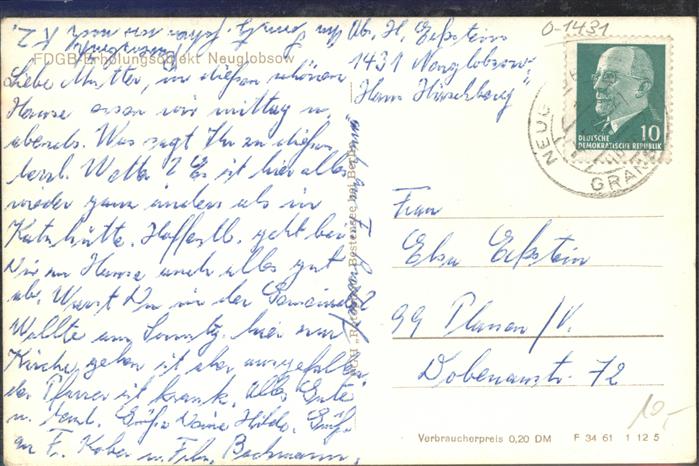 FDGB-Erholungsobjekt Neuglobsow
Liebe Mutter, in diesem schönen
Hause essen wir mittag u.
abends. Was sagt Ihr zu diesem
herrl. Wetter? Es ist hier alles
wieder ganz anders als in
Katzhütte. Hoffentl. geht bei
Dir im Hause auch alles gut
ab. Warst Du in der
Wollte am Sonntg. hier zur
Kirche gehen ist aber ausgefallen
der Pfarrer ist krank. Alles Gute
u. herzl. Grüße Deine Hilde. Grüße
an F. Kober u. Frln. Bachmann,
Abs. H. Eckstein
1431 Neuglobsow
Haus Hirschberg
0-1431
DEUTSCHE
DEMOKRATISCHE REPUBLIK
10
NEUG
GRAN
Frau
Elsa Eckstein
99 Plauen/V.
Dobenaustr. 72
10,-
Verbraucherpreis 0,20 DM F 34 61 1 12 5